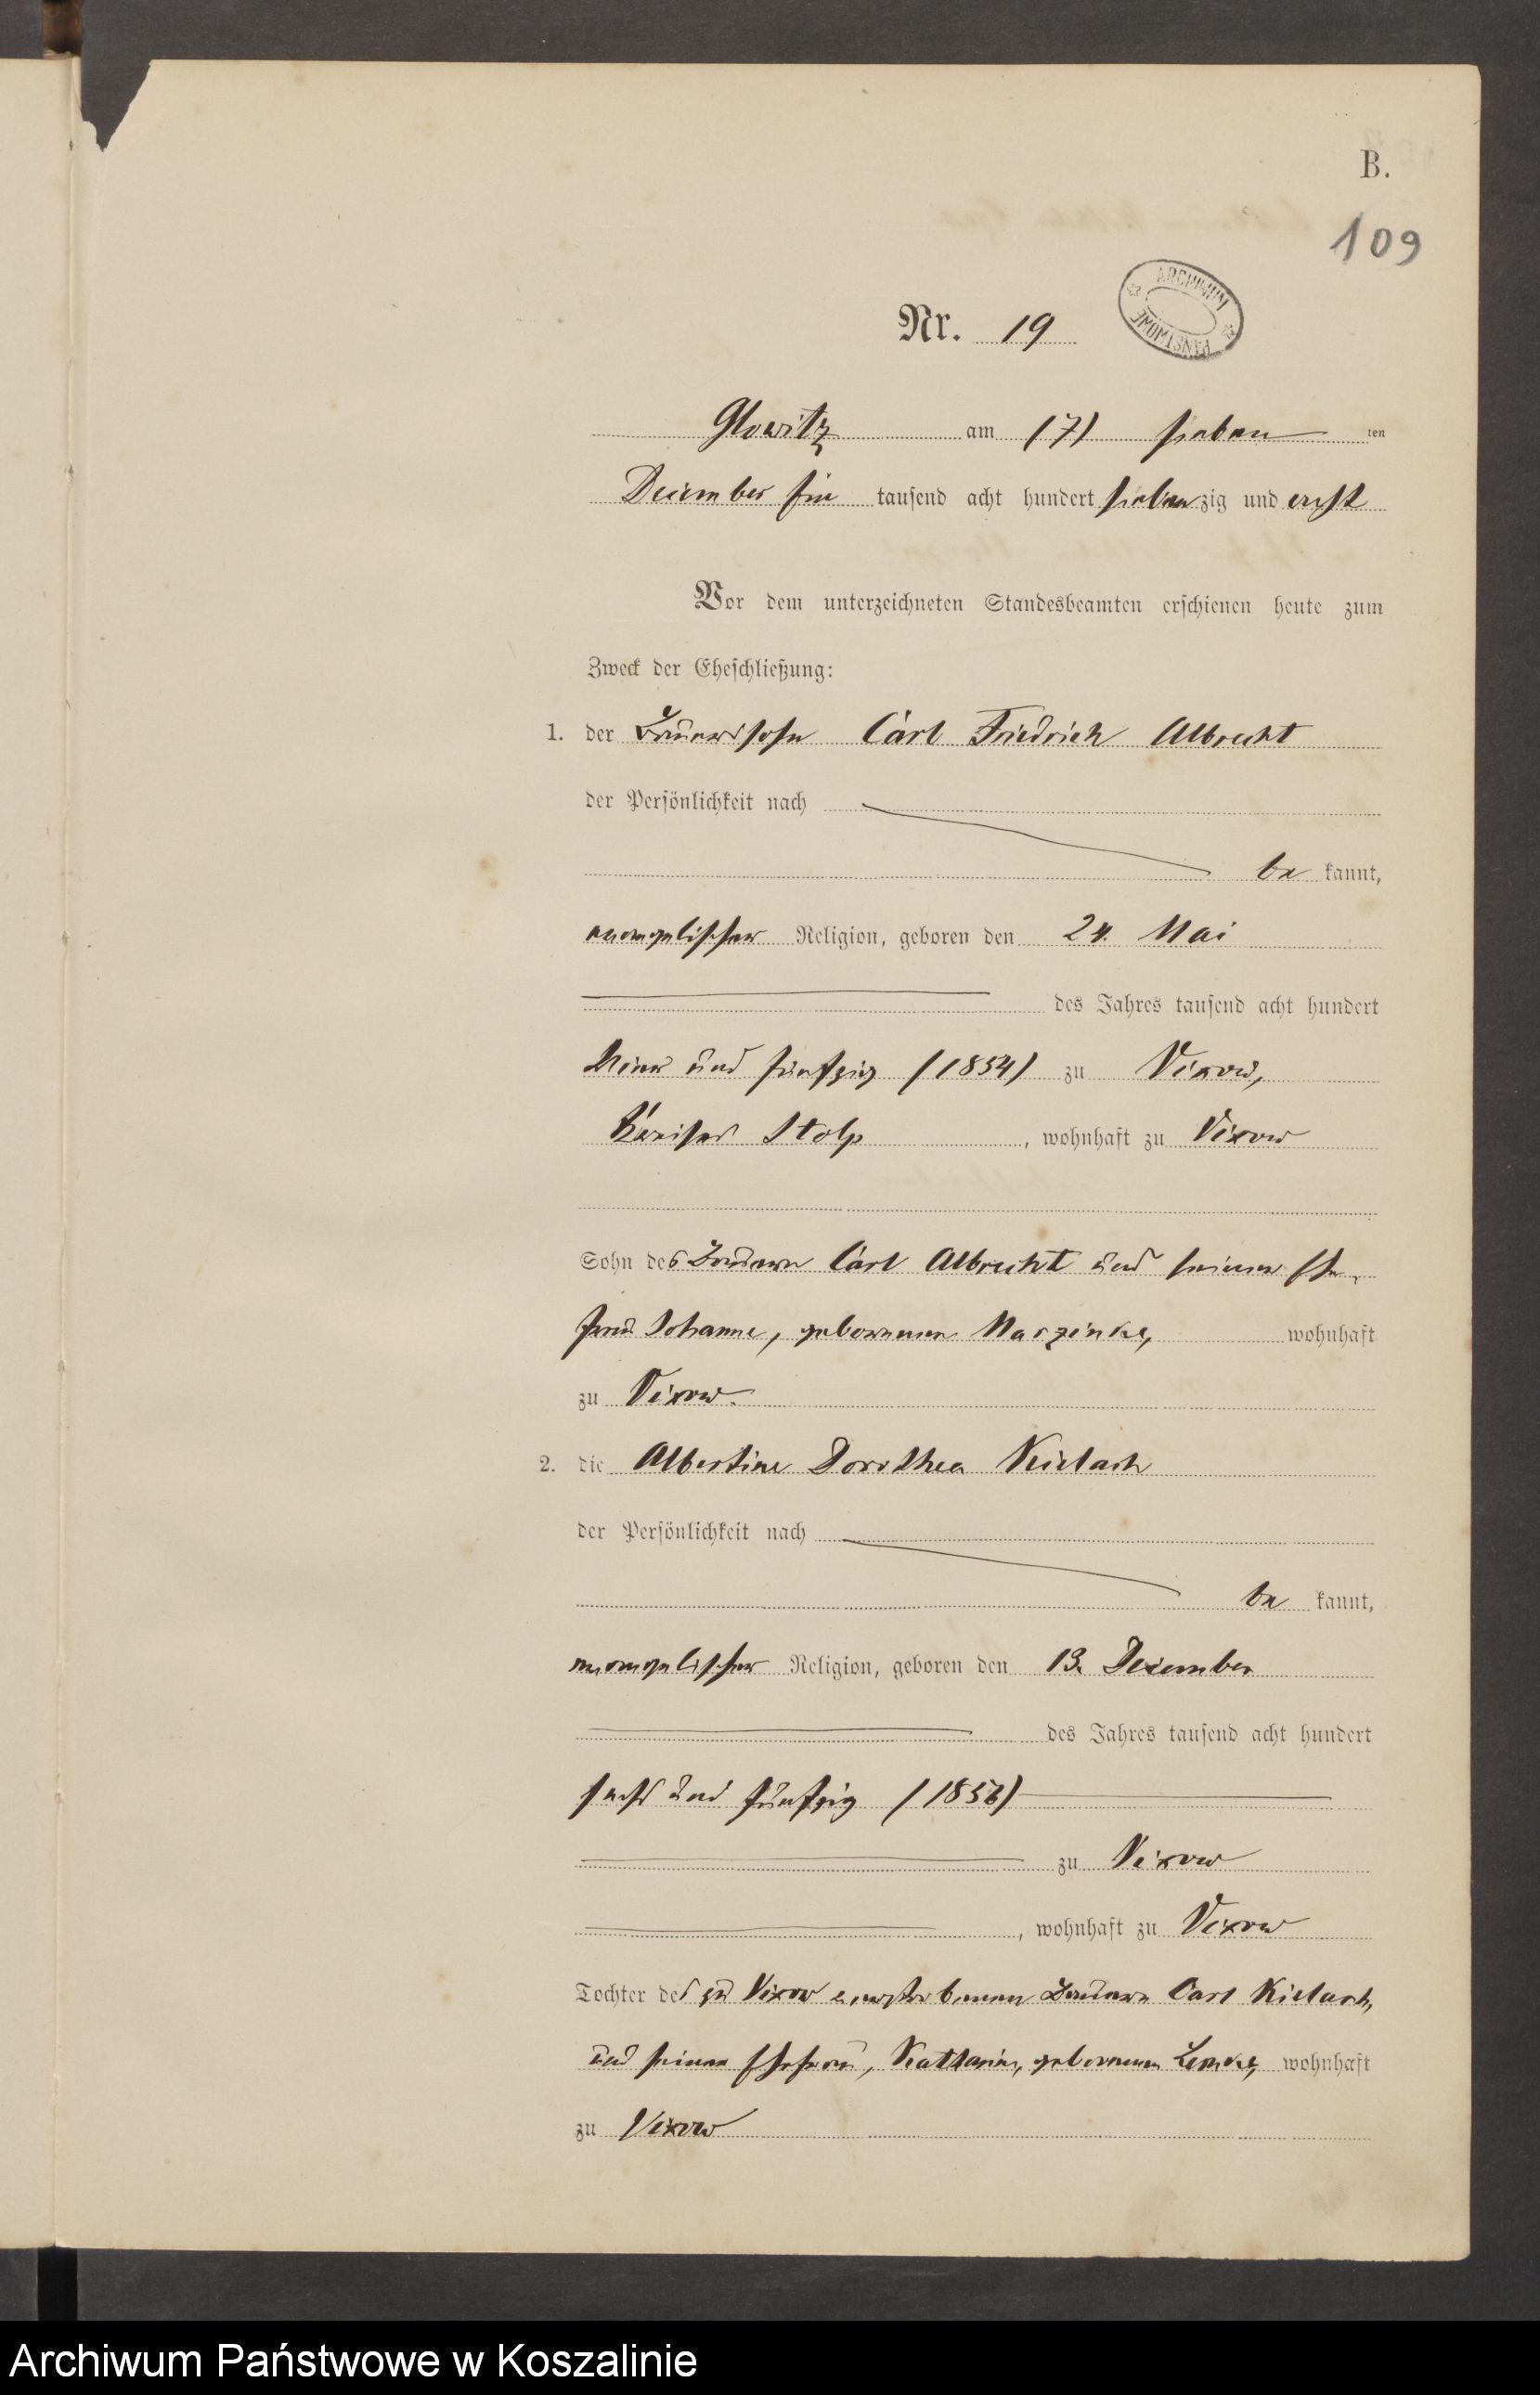 B.
109
Nr. 19
ARCHIWUM PAŃSTWOWE
Glowitz am (7) sieben ten
December ein tausend acht hundert siebenzig und acht
Vor dem unterzeichneten Standesbeamten erschienen heute zum
Zweck der Eheschließung:
1. der Bauerssohn Carl Friedrich Albrecht
der Persönlichkeit nach
be kannt,
evangelischer Religion, geboren den 24. Mai
des Jahres tausend acht hundert
vier und fünfzig (1854) zu Vixow,
Kreises Stolp, wohnhaft zu Vixow
Sohn des Bauern Carl Albrecht und seiner Ehe-
frau Johanne, geborenen Marzinke, wohnhaft
zu Vixow.
2. die Albertine Dorothea Kielach
der Persönlichkeit nach
be kannt,
evangelischer Religion, geboren den 13. Dezember
des Jahres tausend acht hundert
sechs und fünfzig (1856)
zu Vixow
, wohnhaft zu Vixow
Tochter des zu Vixow verstorbenen Bauern Carl Kielach,
und seiner Ehefrau, Katharine, geborenen Lemke, wohnhaft
zu Vixow
Archiwum Państwowe w Koszalinie